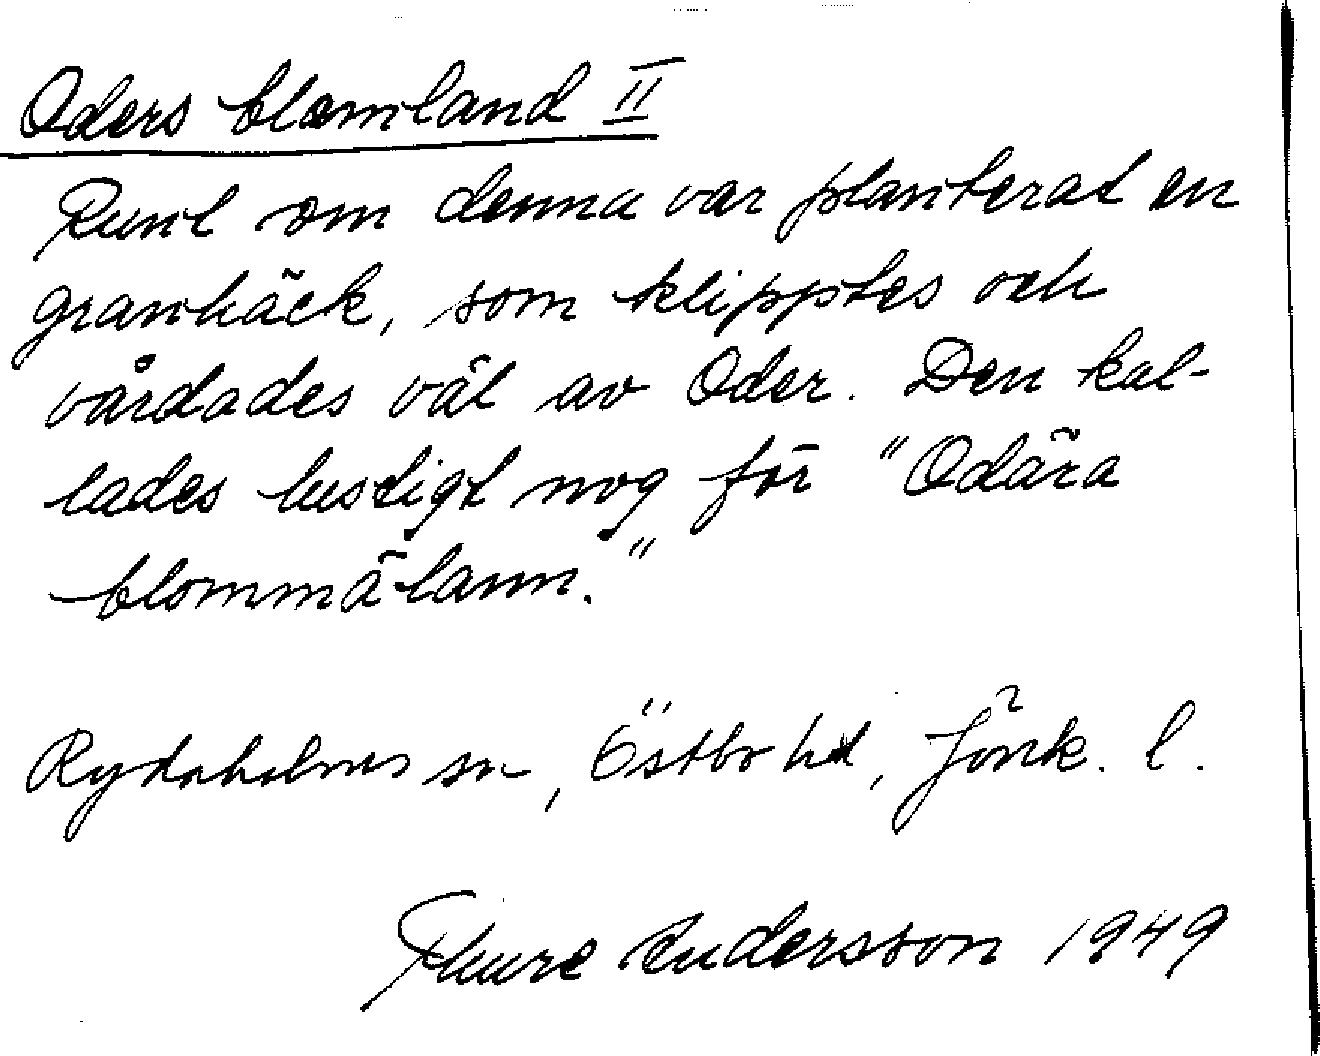 Oders blomland II
Runt om denna var planterat en
granhäck, som klipptes och
vårdades väl av Oder. Den kal-
lades lustigt nog för "Odära
blommälann."
Rydaholms sn, Östbo hd, Jönk. l.
Thure Andersson 1949